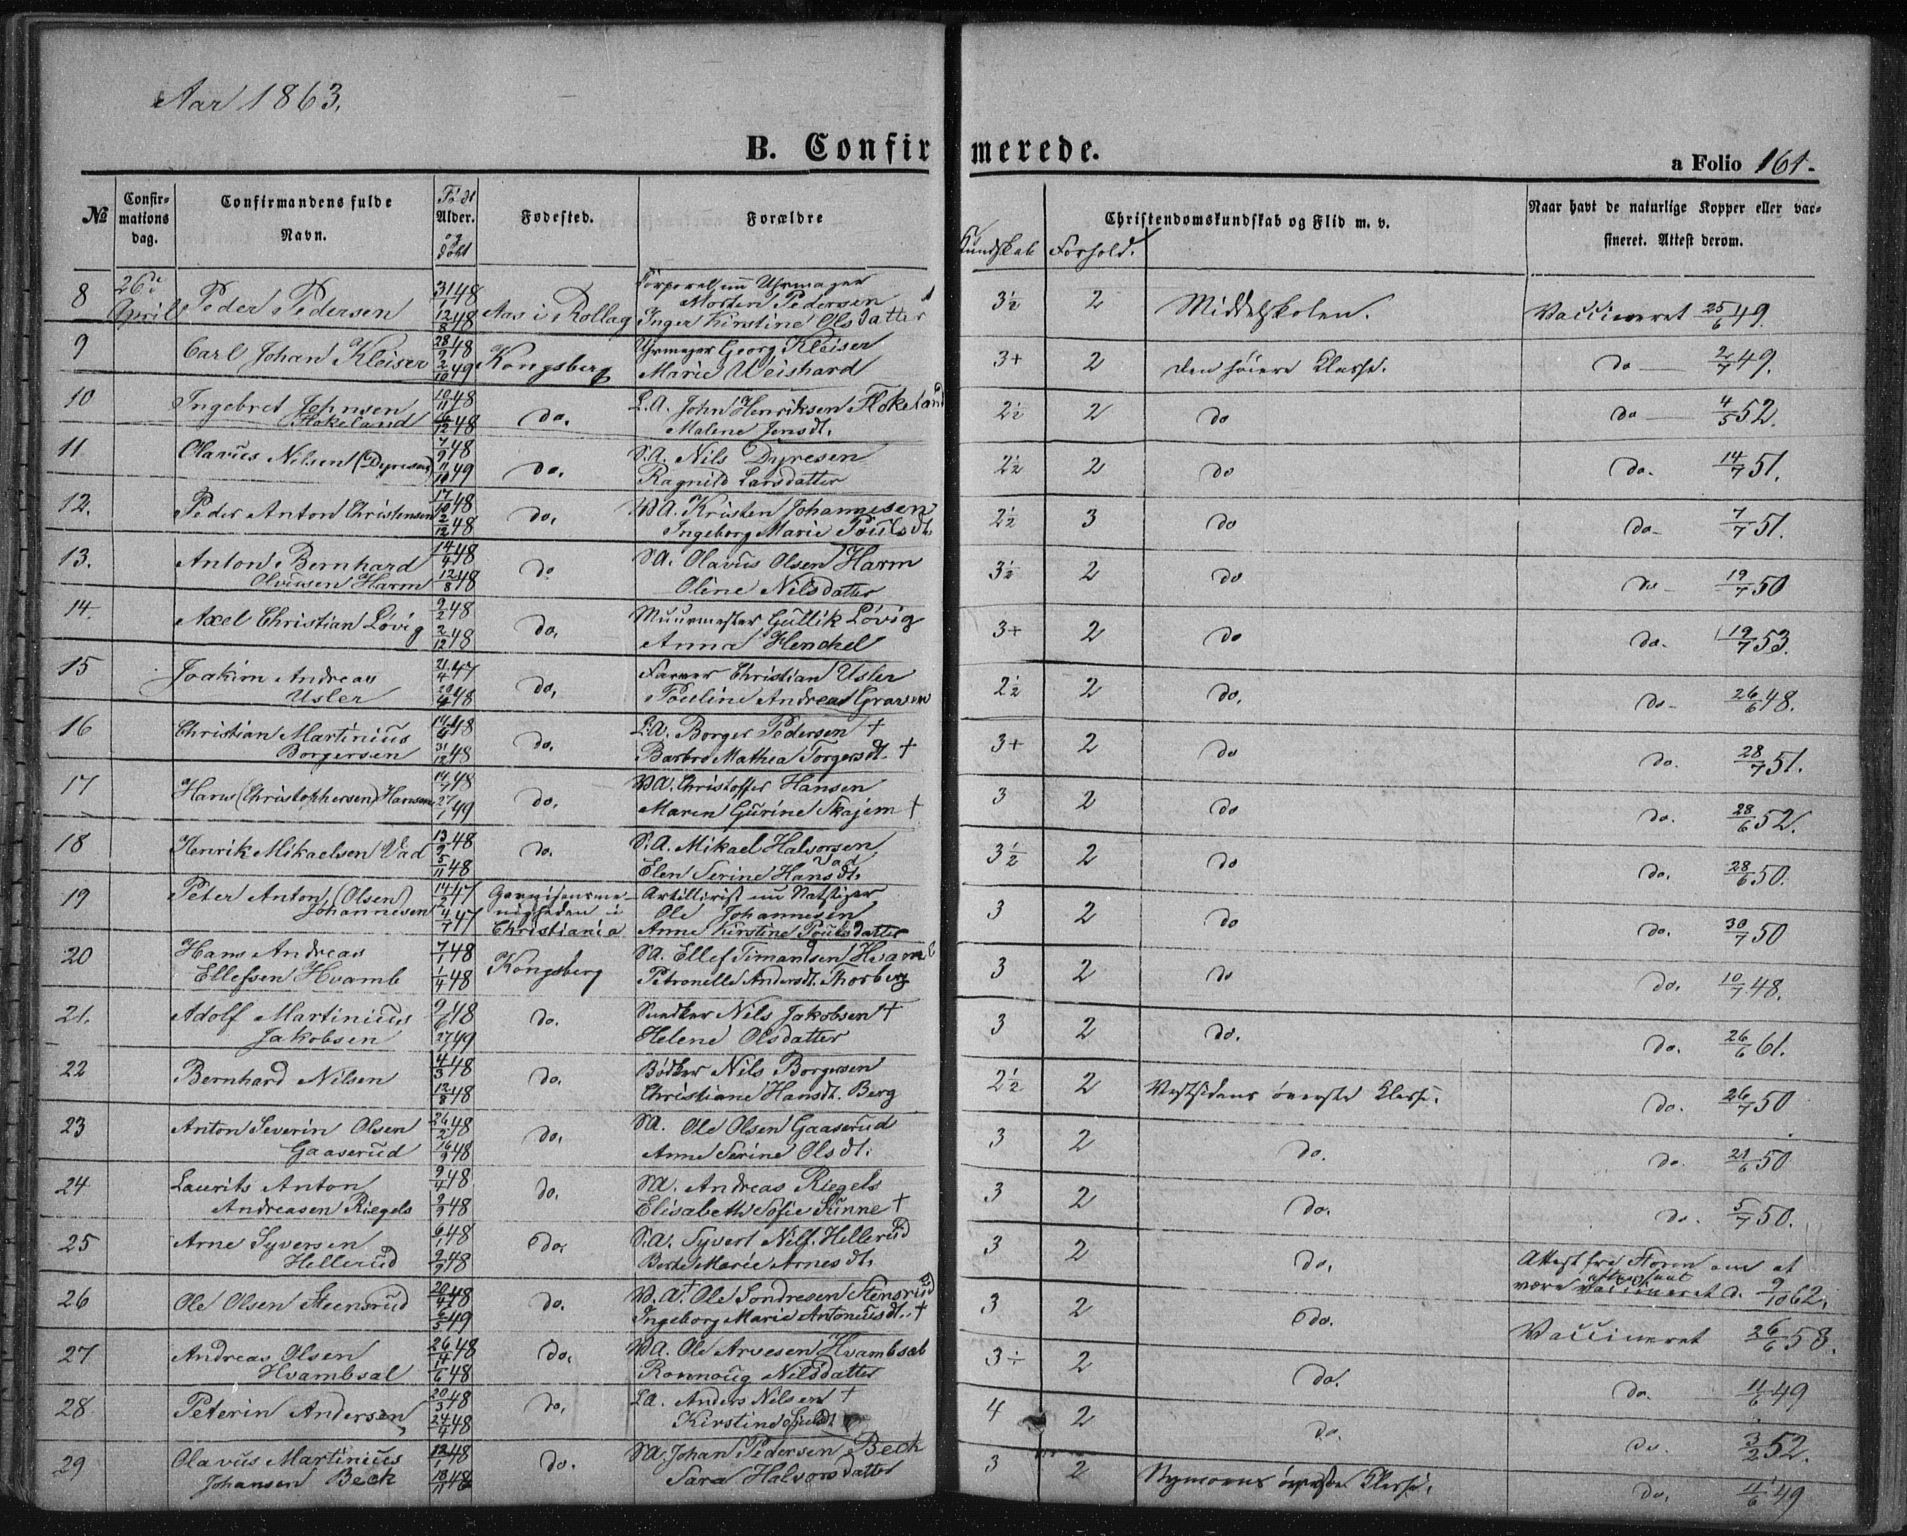 Aar 1863.
B. Confirmerede.
a Folio 161.
№
Confirmations dag.
Confirmandens fulde Navn.
Født Alder. og døbt
Fødested.
Forældre
Kundskab
Forhold.
Christendomskundskab og Flid m. v.
Naar havt de naturlige Kopper eller vaccineret. Attest derom.
8 26de Peder Pedersen 31/1 48 Aas i Rollag Corporal, nu Uhrmager
April 12/8 48 Morten Pedersen
Inger Kirstine Olsdatter 3½ 2 Middelskolen. Vaccineret 25/6 49.
9 Carl Johan Kleiser 28/9 48 Kongsberg Uhrmager Georg Kleiser
2/10 49 Marie Weishard 3+ 2 den høiere Classe. do 2/7 49.
10 Ingebret Johnsen 10/11 48 do. L.A. John Henriksen Flokeland
Flokeland 16/12 48 Malene Jensdt. 2½ 2 do do 4/5 52.
11. Olavus Nilsen (Dyresen) 7/9 48 do. S.A. Nils Dyresen
49 Ragnild Larsdatter 2½ 2 do do. 14/7 51.
12. Peder Anton Christensen 17/10 48 do. Kristen Johannesen
2/12 48 Ingeborg Marie Poulsdt. 2½ 3 do do 7/7 51.
13. Anton Bernhard 14/4 48 do S.A. Olavus Olsen Harm
Olvusen Harm 12/8 48 Oline Nilsdatter 3½ 2 do do 19/7 50
14. Axel Christian Løvig 9/2 48 do. Muurmester Gullik Løvig
2/12 48 Anna Henchel 3+ 2 do do. 19/7 53.
15 Joakim Andreas 21/4 47 do. Farver Christian Usler
Usler 48 Pouline Andrea Graven 2½ 2 do. do 26/6 48.
16 Christian Martinius 48 do. L.A. Borger Pedersen †
Borgersen 31/12 48 Barbro Mathea Torgersdt. † 3+ 2 do do. 28/7 51.
17 Hans (Christophersen) Hansen 14/7 48 do. Christoffer Hansen
27/1 49 Maren Gurine Skajem † 3 2 do do. 28/6 52.
18 Henrik Mikaelsen Vad 13/9 48 do. S.A. Mikael Halvorsen Vad
5/11 48 Elen Serine Hansdt. 3½ 2 do do. 28/6 50.
19 Peter Anton (Olsen) 14/2 47 Garnisonsme- Artillerist nu
Johannesen 4/7 47 nigheden i Ole Johannesen
Christiania Anne Kirstine Poulsdatter 3 2 do do. 30/7 50
20 Hans Andreas 7/1 48 Kongsberg S.A. Ellef Timandsen Hvamb
Ellefsen Hvamb 1/4 48 Petronelle Andersdt. Thorberg 3 2 do do. 10/7 48.
21. Adolf Martinius 9/6 48 do. Snedker Nils Jakobsen †
Jakobsen 49 Helene Olsdatter 3 2 do. do. 26/6 61.
22 Bernhard Nilsen 4/3 48 do. Bødker Nils Borgersen
12/8 48 Christiane Hansdt. Berg 2½ 2 Vestsidens øverste Classe. do. 26/7 50
23 Anton Severin Olsen 26/2 48 do. S.A. Ole Olsen Gaaserud
Gaaserud 16/9 48 Anne Serine Olsdt. 3 2 do. do. 21/6 50
24 Laurits Anton 9/4 48 do. Andreas Riegels
Andreasen Riegels 9/9 48 Elisabeth Sofie Sünne † 3 2 do. do. 5/7 50.
25 Arne Syversen 6/1 48 do. S.A. Syvert Nils. Hellerud
Hellerud 48 Berte Marie Arnesdt. 3 2 do. Attest fra om at
være vaccineret d. 9/10 62.
26 Ole Olsen Steensrud 48 do. † Ole Sondresen Stensrud
6/5 49 Ingeborg Marie Antoniusdt. † 3 2 do. Vaccineret 26/6 58.
27 Andreas Olsen 26/4 48 do. Ole Arvesen Hvambsal
Hvambsal 14/6 48 Ronnoug Nilsdatter 3÷ 2 do. do. 11/6 49
28 Peterin Andersen 20/3 48 do. L.A. Anders Nilsen †
24/4 48 Kirstine 4 2 do. do. 3/2 52.
29 Olavus Martinius 12/1 48 do. S.A. Johan Pedersen Beck
Johansen Beck 18/11 48 Sara Halvorsdatter 3 2 Nymoens øverste Classe. do. 11/6 49